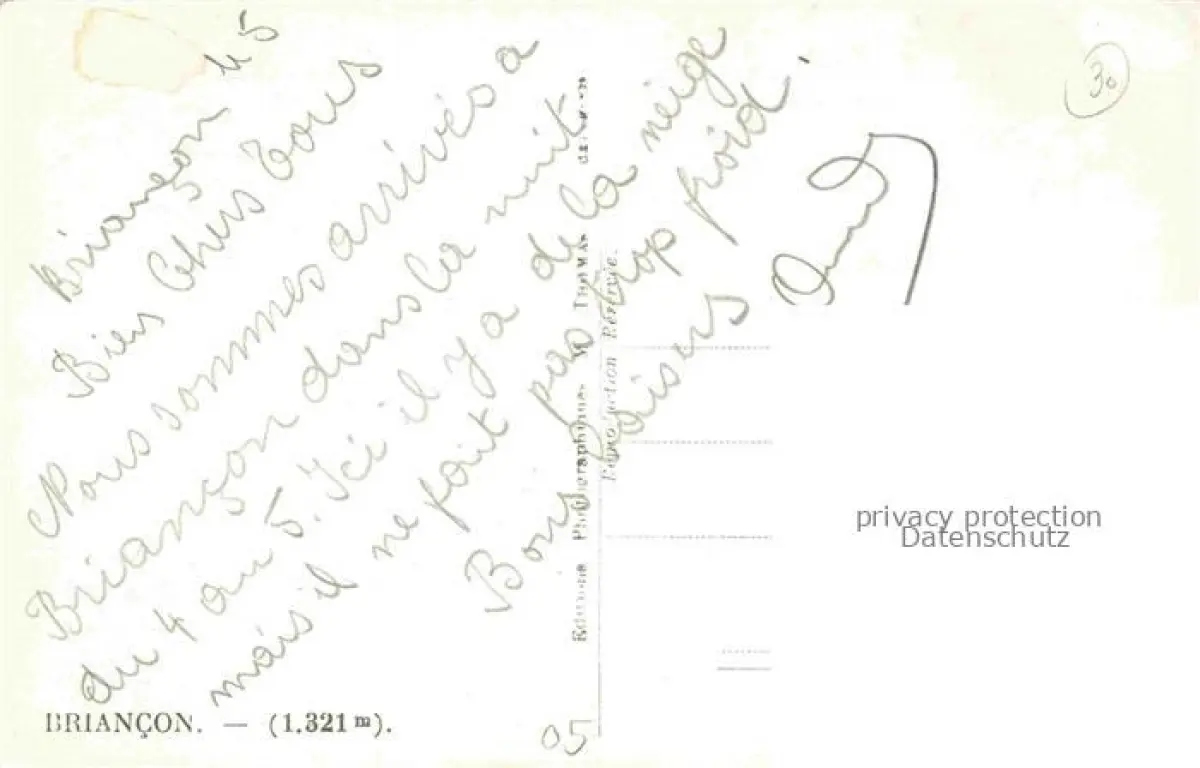 Briançon 4 5
Bien Chers tous
Nous sommes arrivés a
Briançon dans la nuit
du 4 au 5. Ici il y a de la neige
mais il ne fait pas trop froid.
Bons baisers
30
Reproduction Réservée.
privacy protection
Datenschutz
BRIANÇON. — (1.321 m).
05